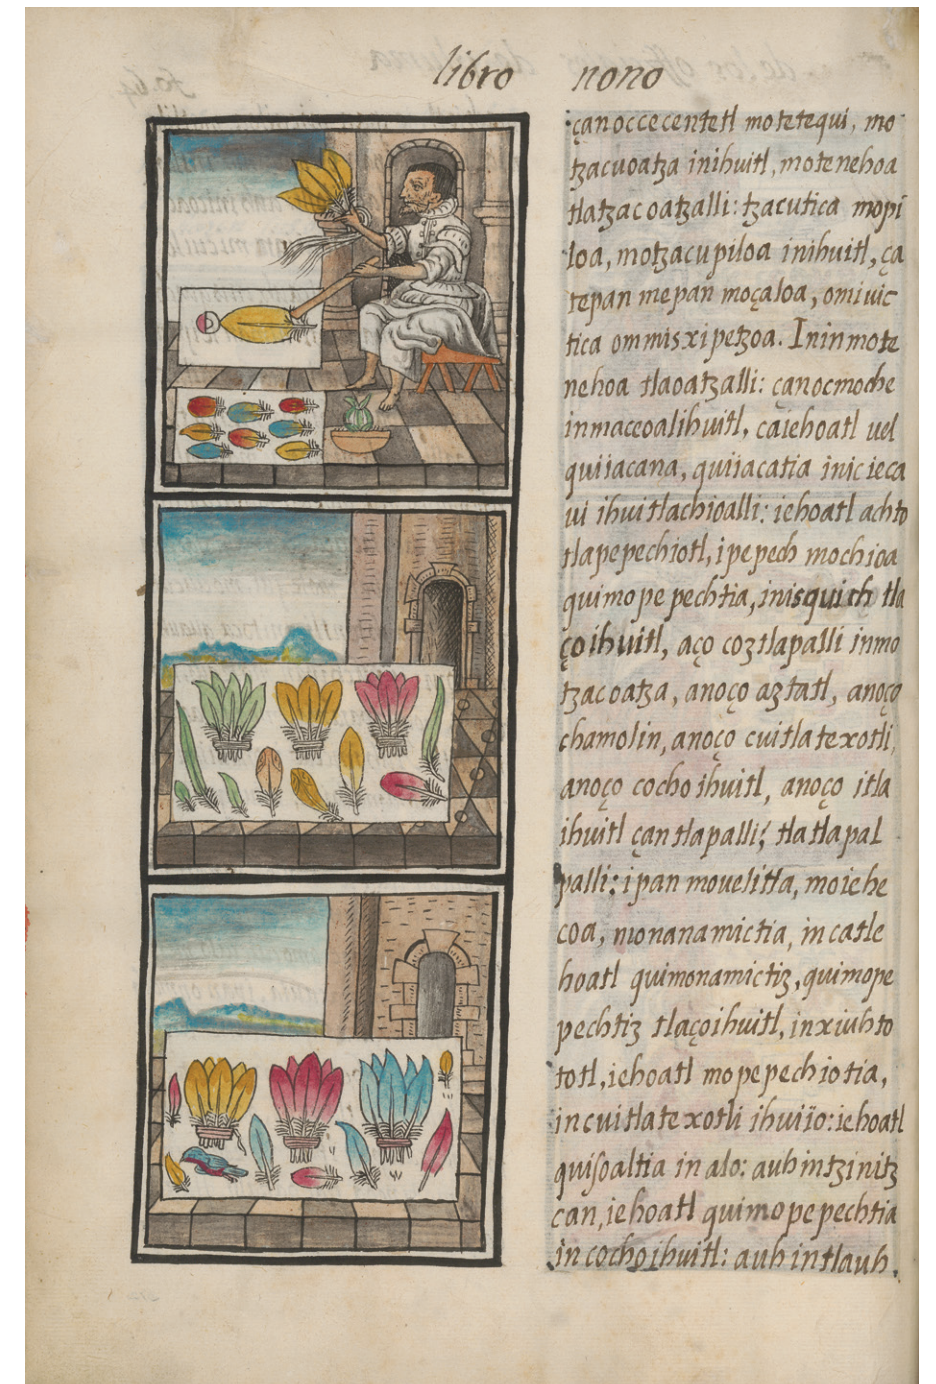 libro nono
çanoccecentetl motetequi, mo
tzacuoatza inihuitl, motenehoa
tlatzacoatzalli: tzacutica mopi
loa, motzacupiloa inihuitl, ça
tepan mepan moçaloa, omiuic
tica ommisxipetzoa. Ininmote
nehoa tlaoatzalli: çanocmoche
inmaceoalihuitl, caiehoatl uel
quiiacana, quiiacatia inicieca
ui ihuitlachioalli: iehoatl achto
tlapepechiotl, ipepech mochioa
quimopepechtia, inisquich tla
çoihuitl, aço coztlapalli inmo
tzacoatza, anoço aztatl, anoço
chamolin, anoço cuitlatexotli,
anoço cochoihuitl, anoço itla
ihuitl çantlapalli, tlatlapal
palli: ipan mouelitta, moiehe
coa, monanamictia, incatle
hoatl quimonamictiz, quimope
pechtiz tlaçoihuitl, inxiuhto
totl, iehoatl mopepechiotia,
incuitlatexotli ihuiio: iehoatl
quisoaltia in alo: auhintzinitz
can, iehoatl quimopepechtia
in cochoihuitl: auhintlauh,